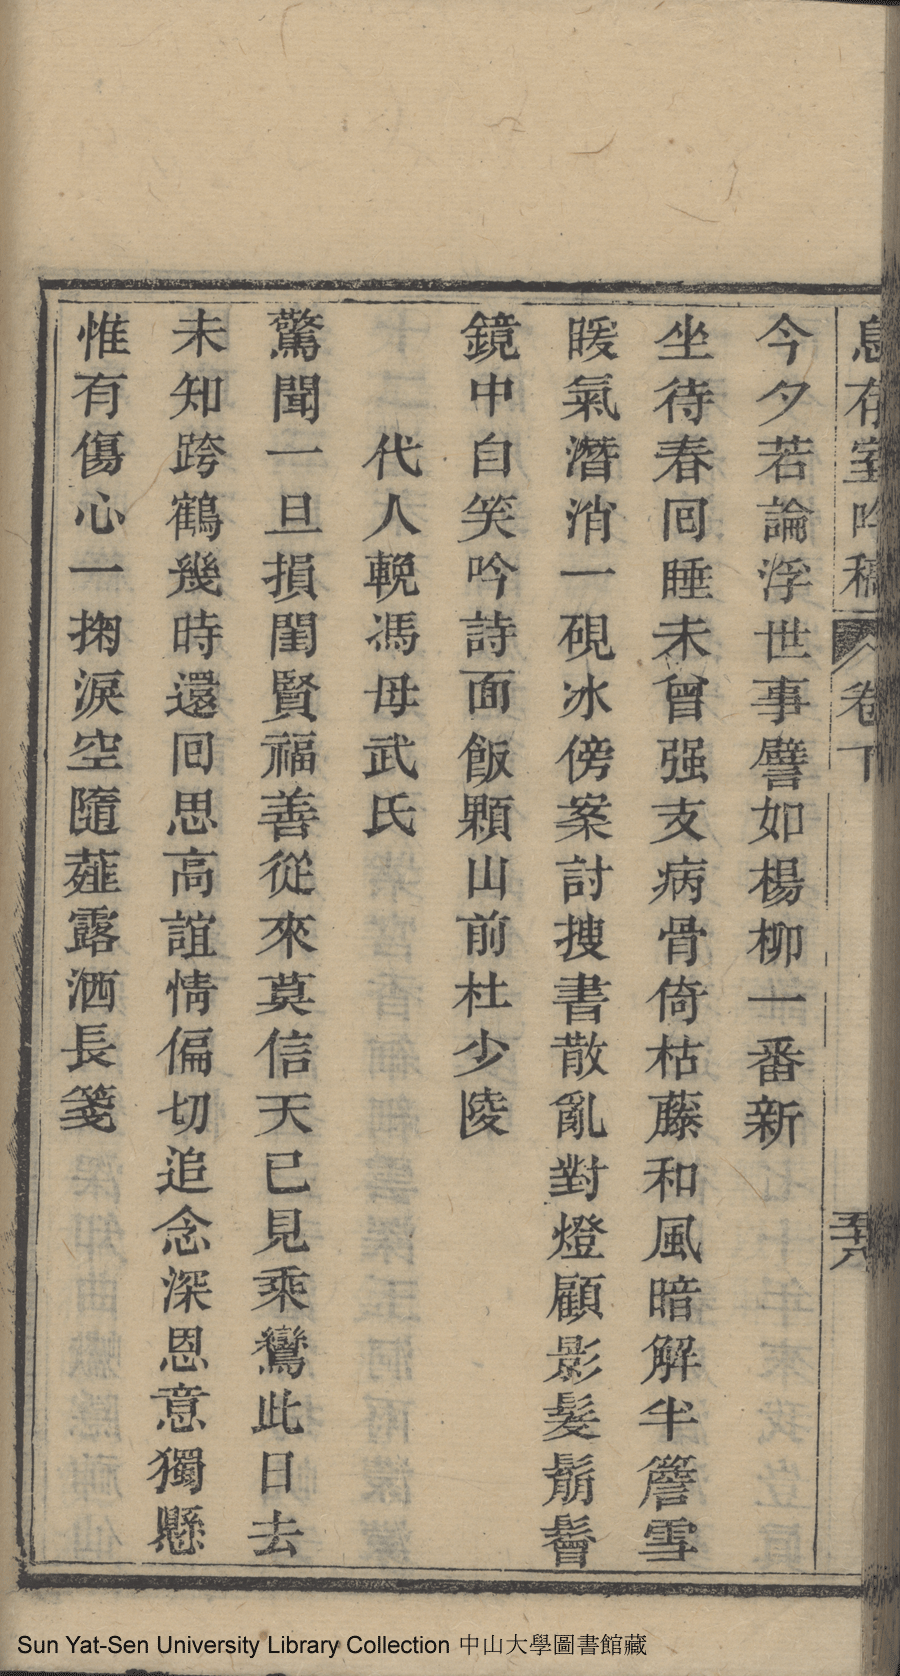 息存室吟稿 卷下 五十八
今夕若論浮世事譬如楊柳一番新
坐待春回睡未曾强支病骨倚枯藤和風暗解半簷雪
暖氣潛消一硯冰傍案討搜書散亂對燈顧影髮鬅鬙
鏡中自笑吟詩面飯顆山前杜少陵
代人輓馮母武氏
驚聞一旦損閨賢福善從來莫信天已見乘鸞此日去
未知跨鶴幾時還回思高誼情偏切追念深恩意獨懸
惟有傷心一掬淚空隨薤露洒長箋
Sun Yat-Sen University Library Collection 中山大學圖書館藏